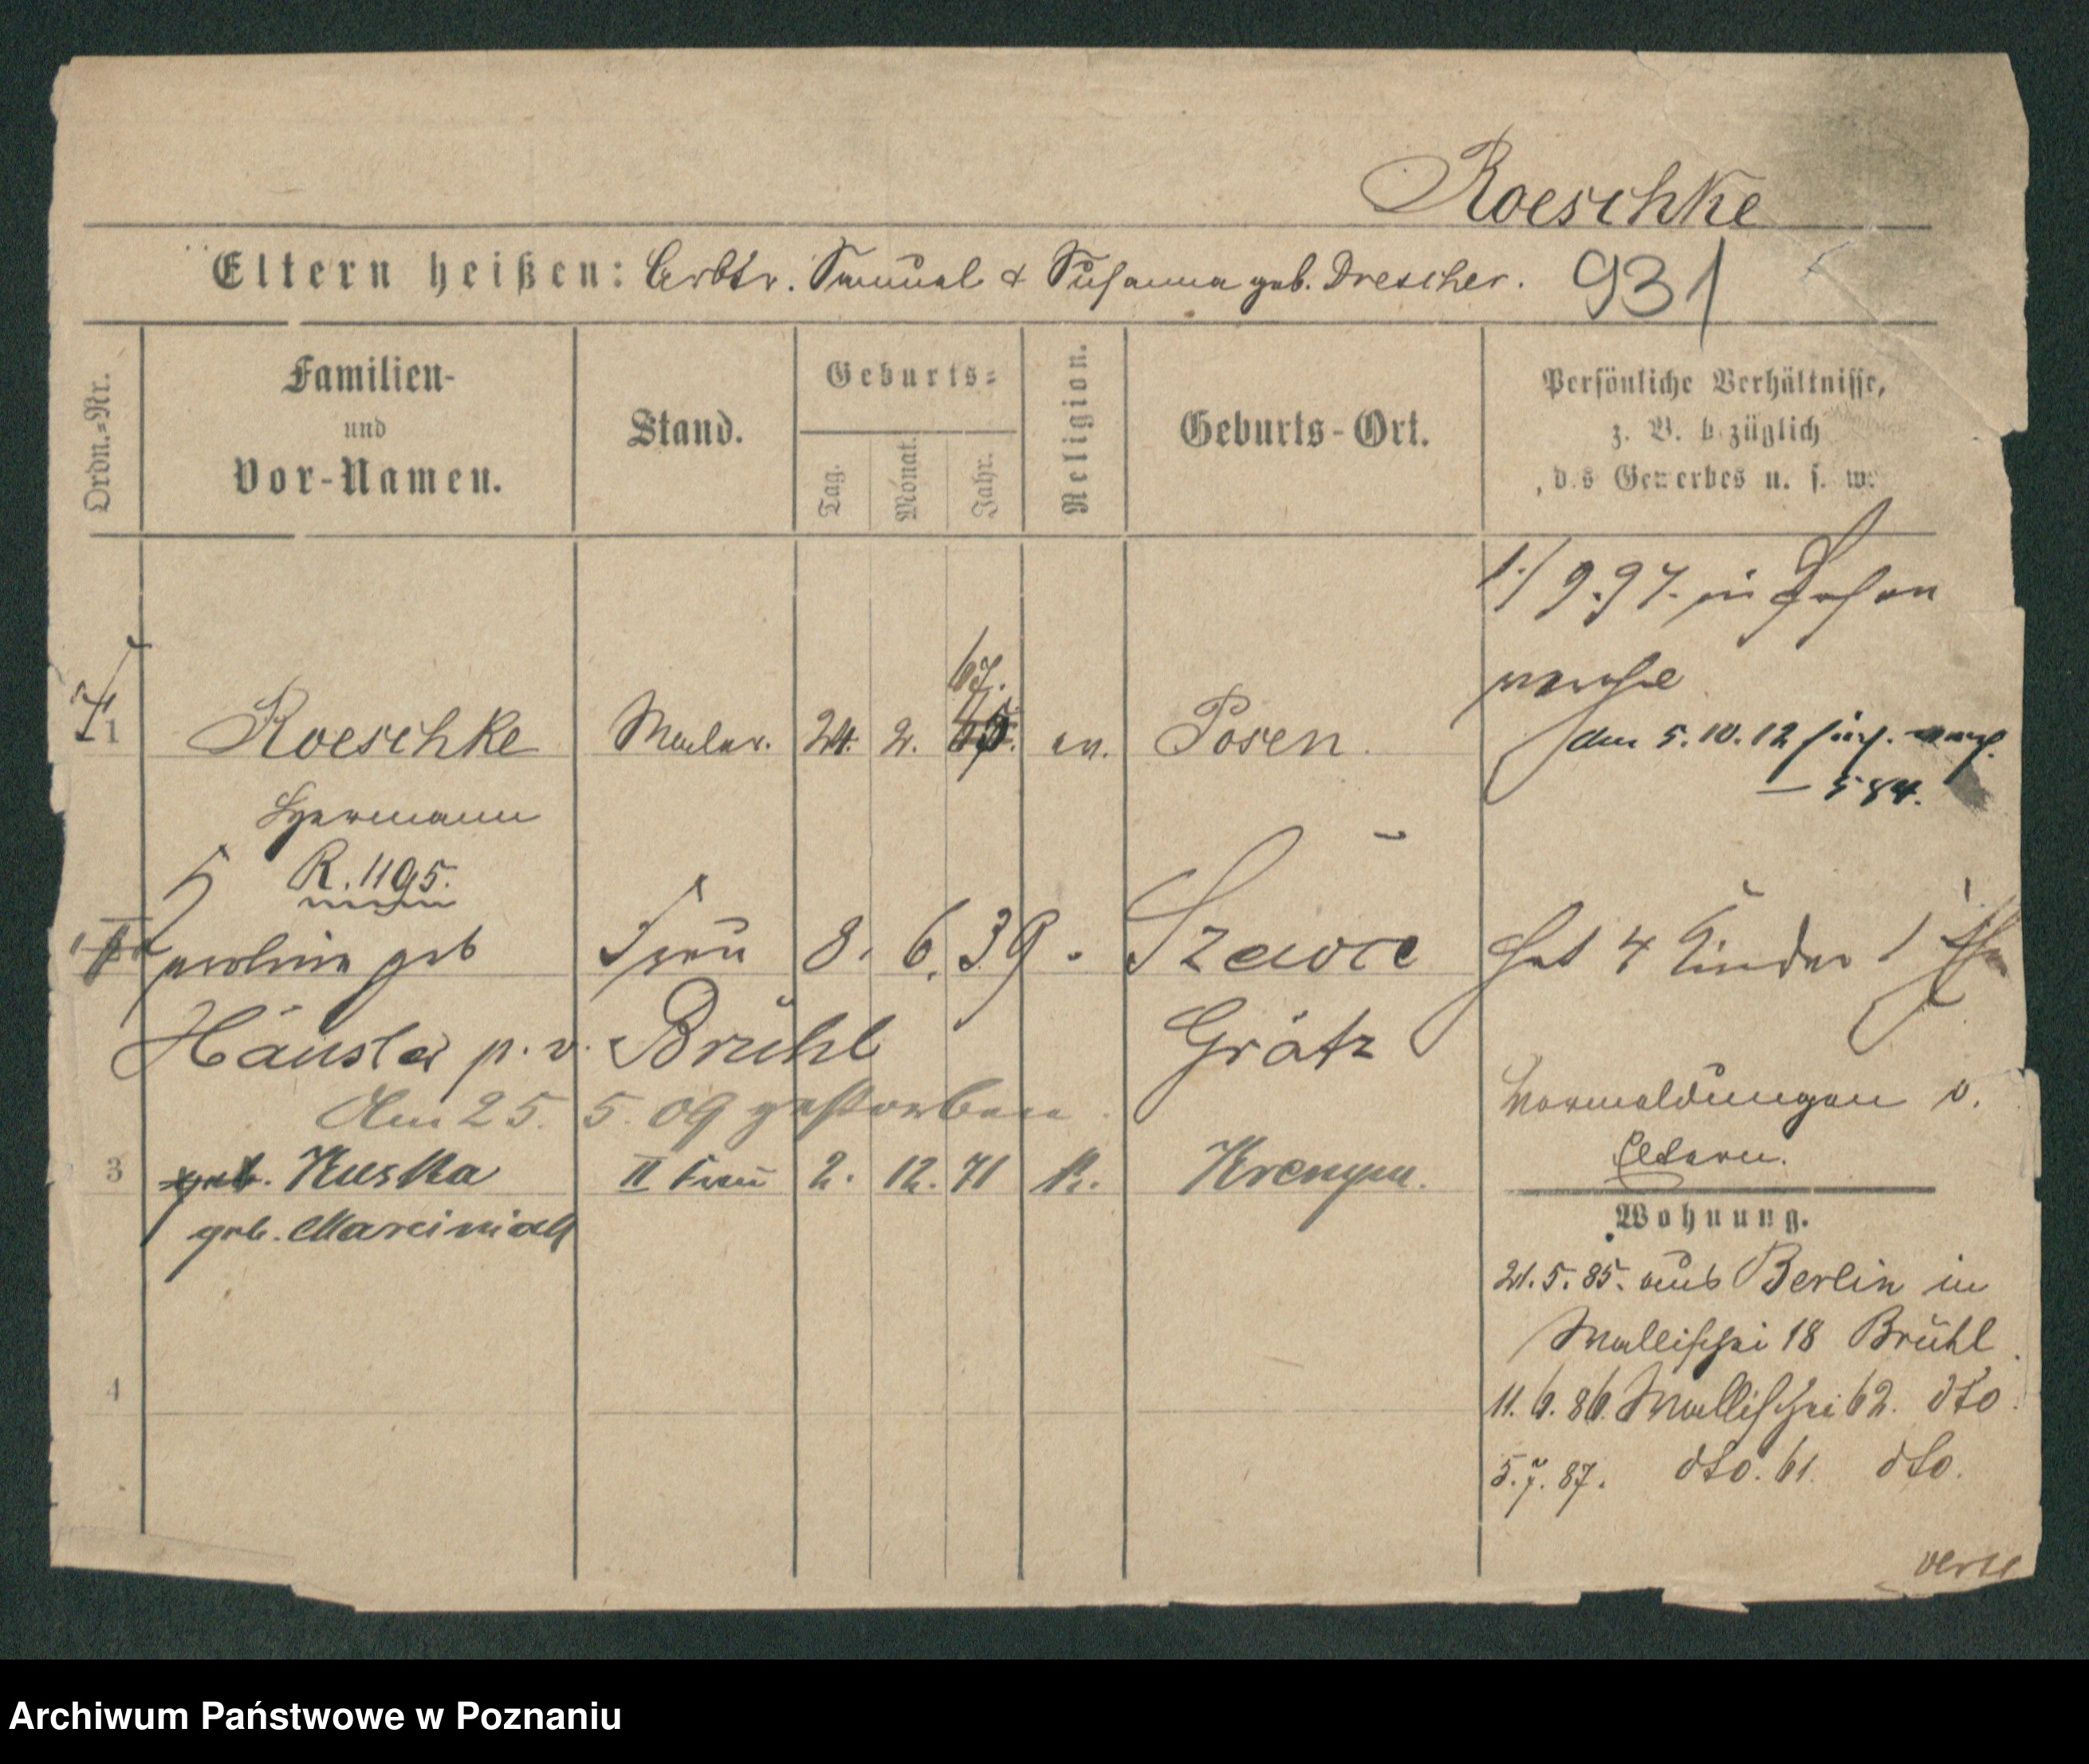 Roeschke
Eltern heißen: Arbtr. Samuel & Susanna geb. Drescher. 931
Ordn.-Nr.
Familien-
und
Vor-Namen.
Stand.
Geburts-
Tag.
Monat.
Jahr.
Religion.
Geburts-Ort.
Persönliche Verhältnisse,
z. B. bezüglich
des Gewerbes u. s. w.
1./9.97. in Posen
67.
1 Roeschke Maler. 24. 2. ev. Posen.
den 5.10.12
584.
Hermann
R. 1195.
geb Frau 8. 6. 39. hat 4 Kinder 1
Häusler p. v. Brühl Grätz
Am 25. 5. 09 gestorben.
Vormeldungen s.
Eltern.
3 geb. Kuska II Frau 2. 12. 71 k. Krempa.
geb. Marciniak
Wohnung.
21.5.85. aus Berlin in
Wallischei 18 Brühl
4
11.6.86. Wallischei 62. dto.
5.7.87. dto. 61. dto.
Archiwum Państwowe w Poznaniu